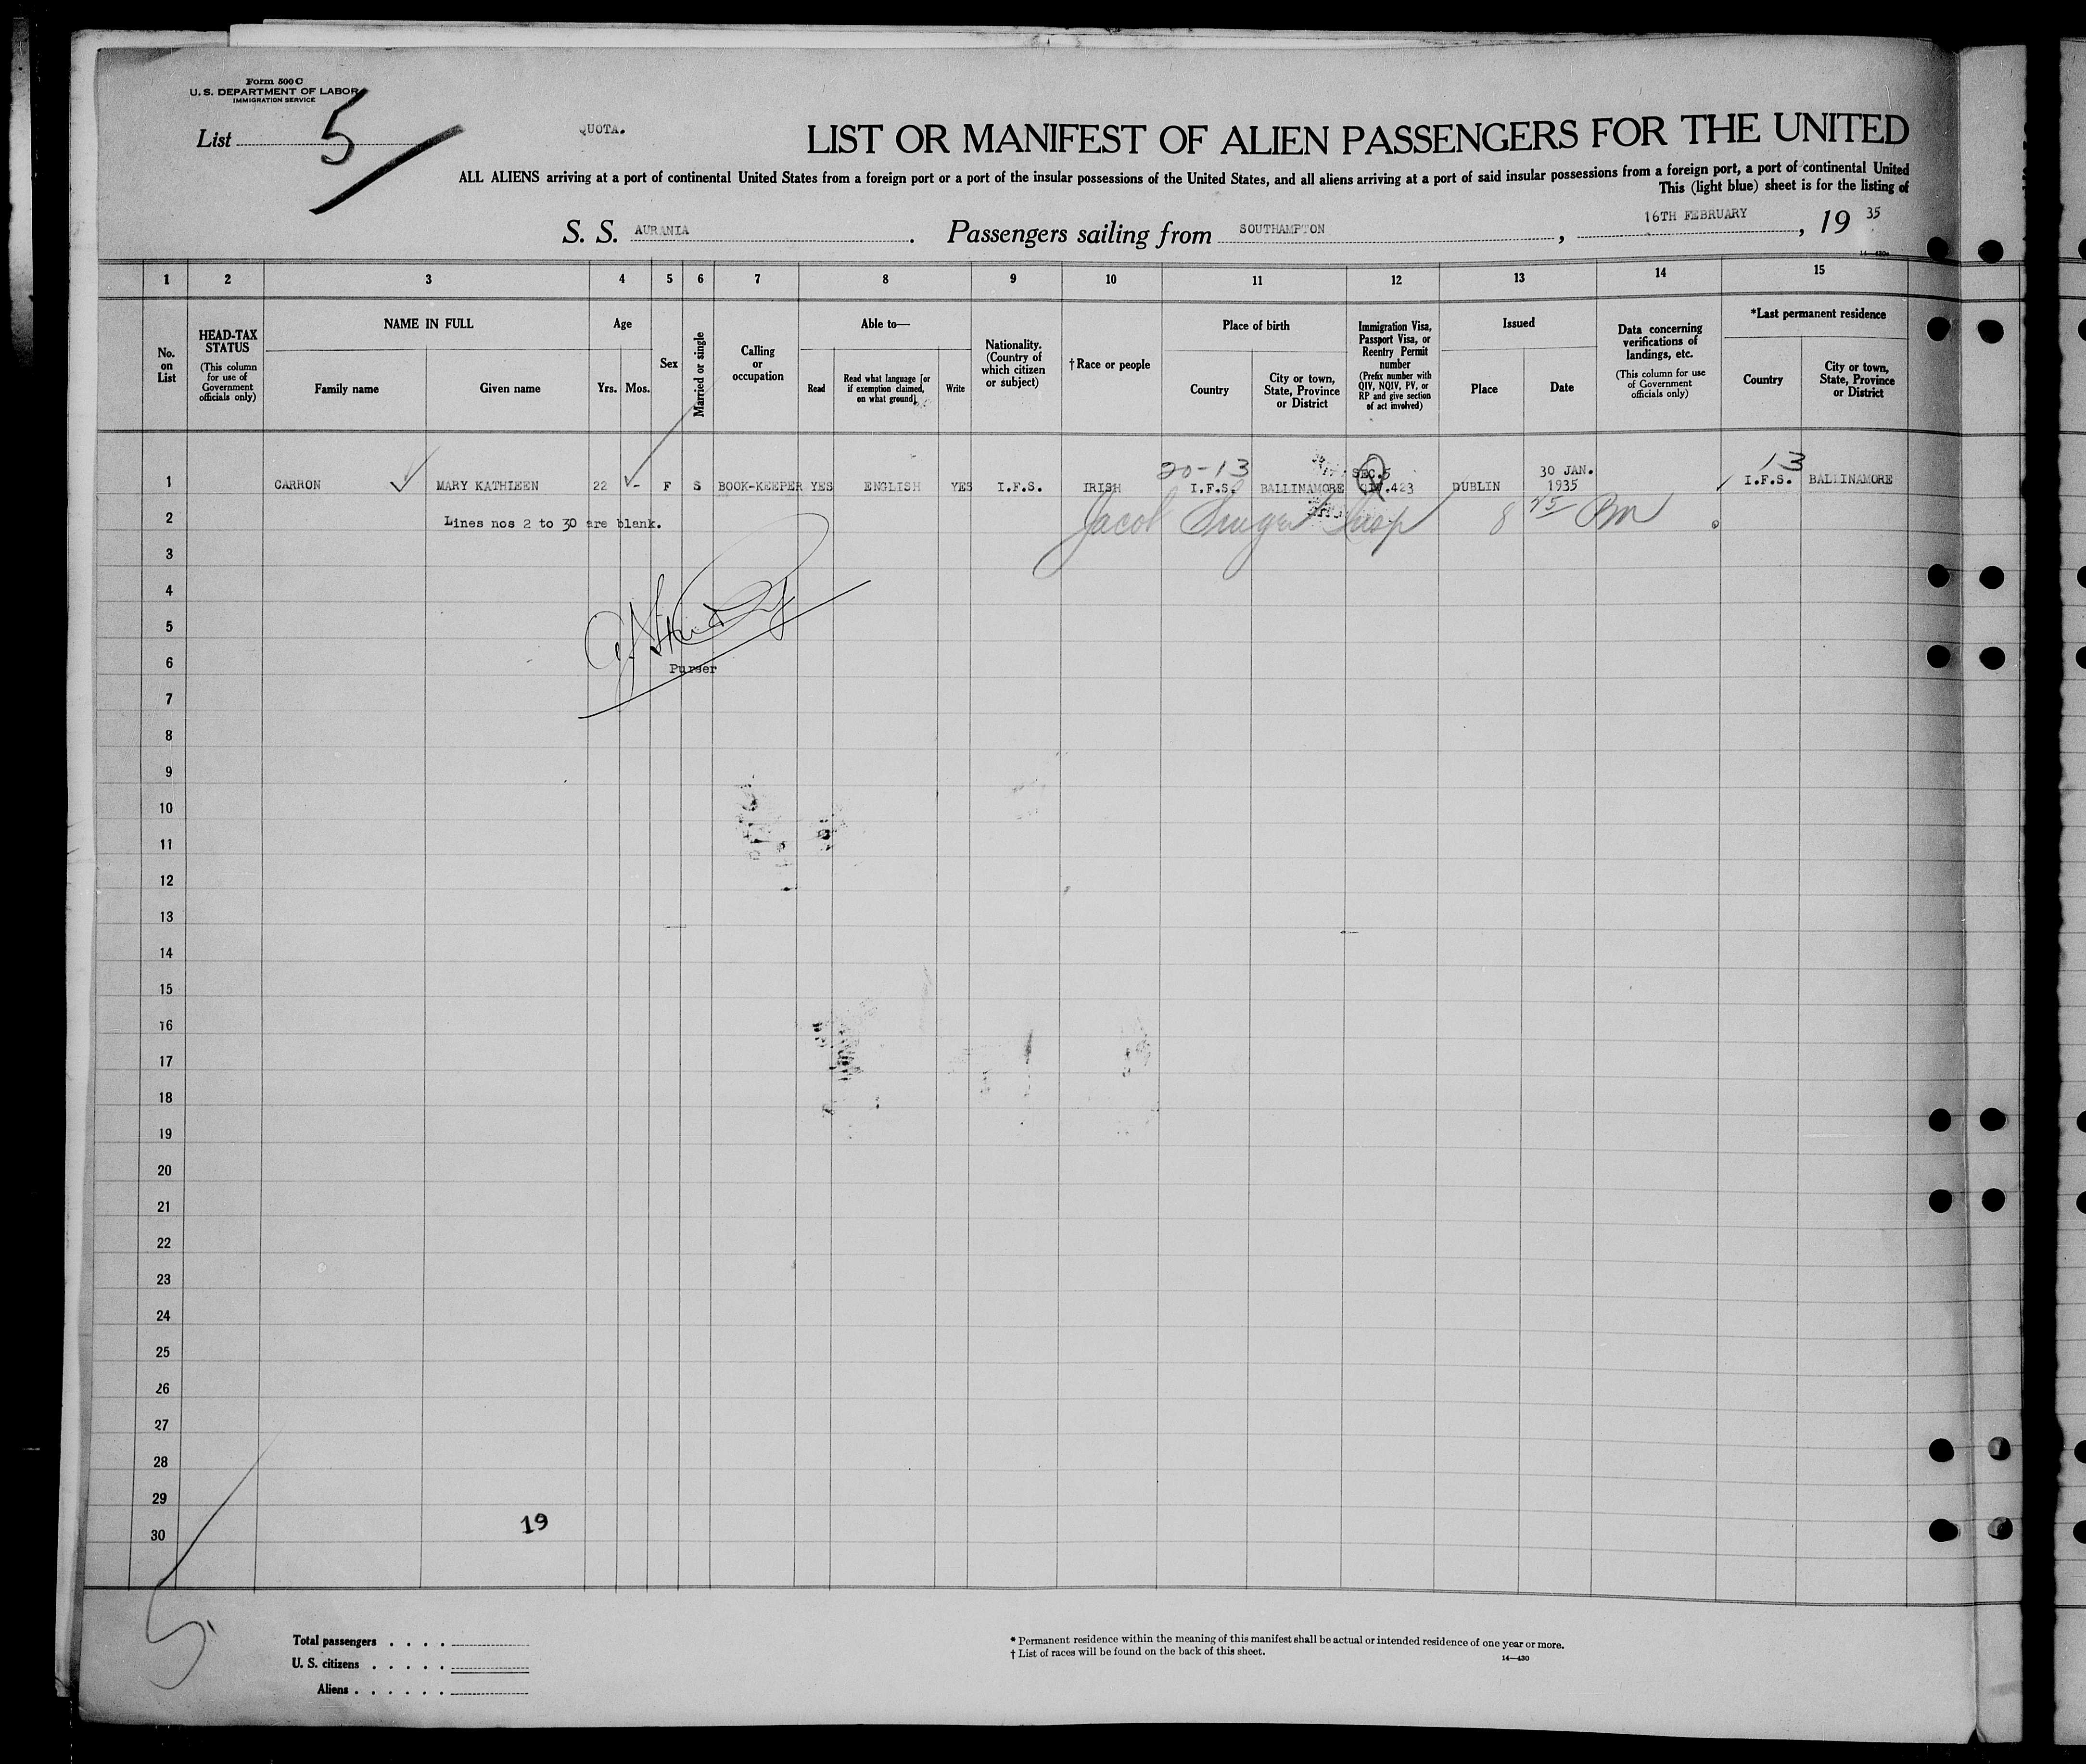 Form 500 C
U. S. DEPARTMENT OF LABOR
IMMIGRATION SERVICE
List 5
QUOTA.
LIST OR MANIFEST OF ALIEN PASSENGERS FOR THE UNITED
ALL ALIENS arriving at a port of continental United States from a foreign port or a port of the insular possessions of the United States, and all aliens arriving at a port of said insular possessions from a foreign port, a port of continental United
This (light blue) sheet is for the listing of
S. S. AURANIA. Passengers sailing from SOUTHAMPTON, 16TH FEBRUARY, 19 35
14—430
1 2 3 4 5 6 7 8 9 10 11 12 13 14 15
No. on List
HEAD-TAX STATUS
(This column for use of Government officials only)
NAME IN FULL
Family name Given name
Age
Yrs. Mos.
Sex
Married or single
Calling or occupation
Able to—
Read
Read what language [or if exemption claimed, on what ground]
Write
Nationality. (Country of which citizen or subject)
†Race or people
Place of birth
Country
City or town, State, Province or District
Immigration Visa, Passport Visa, or Reentry Permit number
(Prefix number with QIV, NQIV, PV, or RP and give section of act involved)
Issued
Place Date
Data concerning verifications of landings, etc.
(This column for use of Government officials only)
*Last permanent residence
Country
City or town, State, Province or District
20-13 SEC.5 30 JAN. 13
1 CARRON MARY KATHLEEN 22 - F S BOOK-KEEPER YES ENGLISH YES I.F.S. IRISH I.F.S. BALLINAMORE QIV.423 DUBLIN 1935 I.F.S. BALLINAMORE
2 Lines nos 2 to 30 are blank. Jacob Singer Insp 8 45 Pm
3
4
5
6 Purser
7
8
9
10
11
12
13
14
15
16
17
18
19
20
21
22
23
24
25
26
27
28
29
30
19
5
Total passengers . . . .
U. S. citizens . . . . .
Aliens . . . . . .
* Permanent residence within the meaning of this manifest shall be actual or intended residence of one year or more.
† List of races will be found on the back of this sheet.
14—430